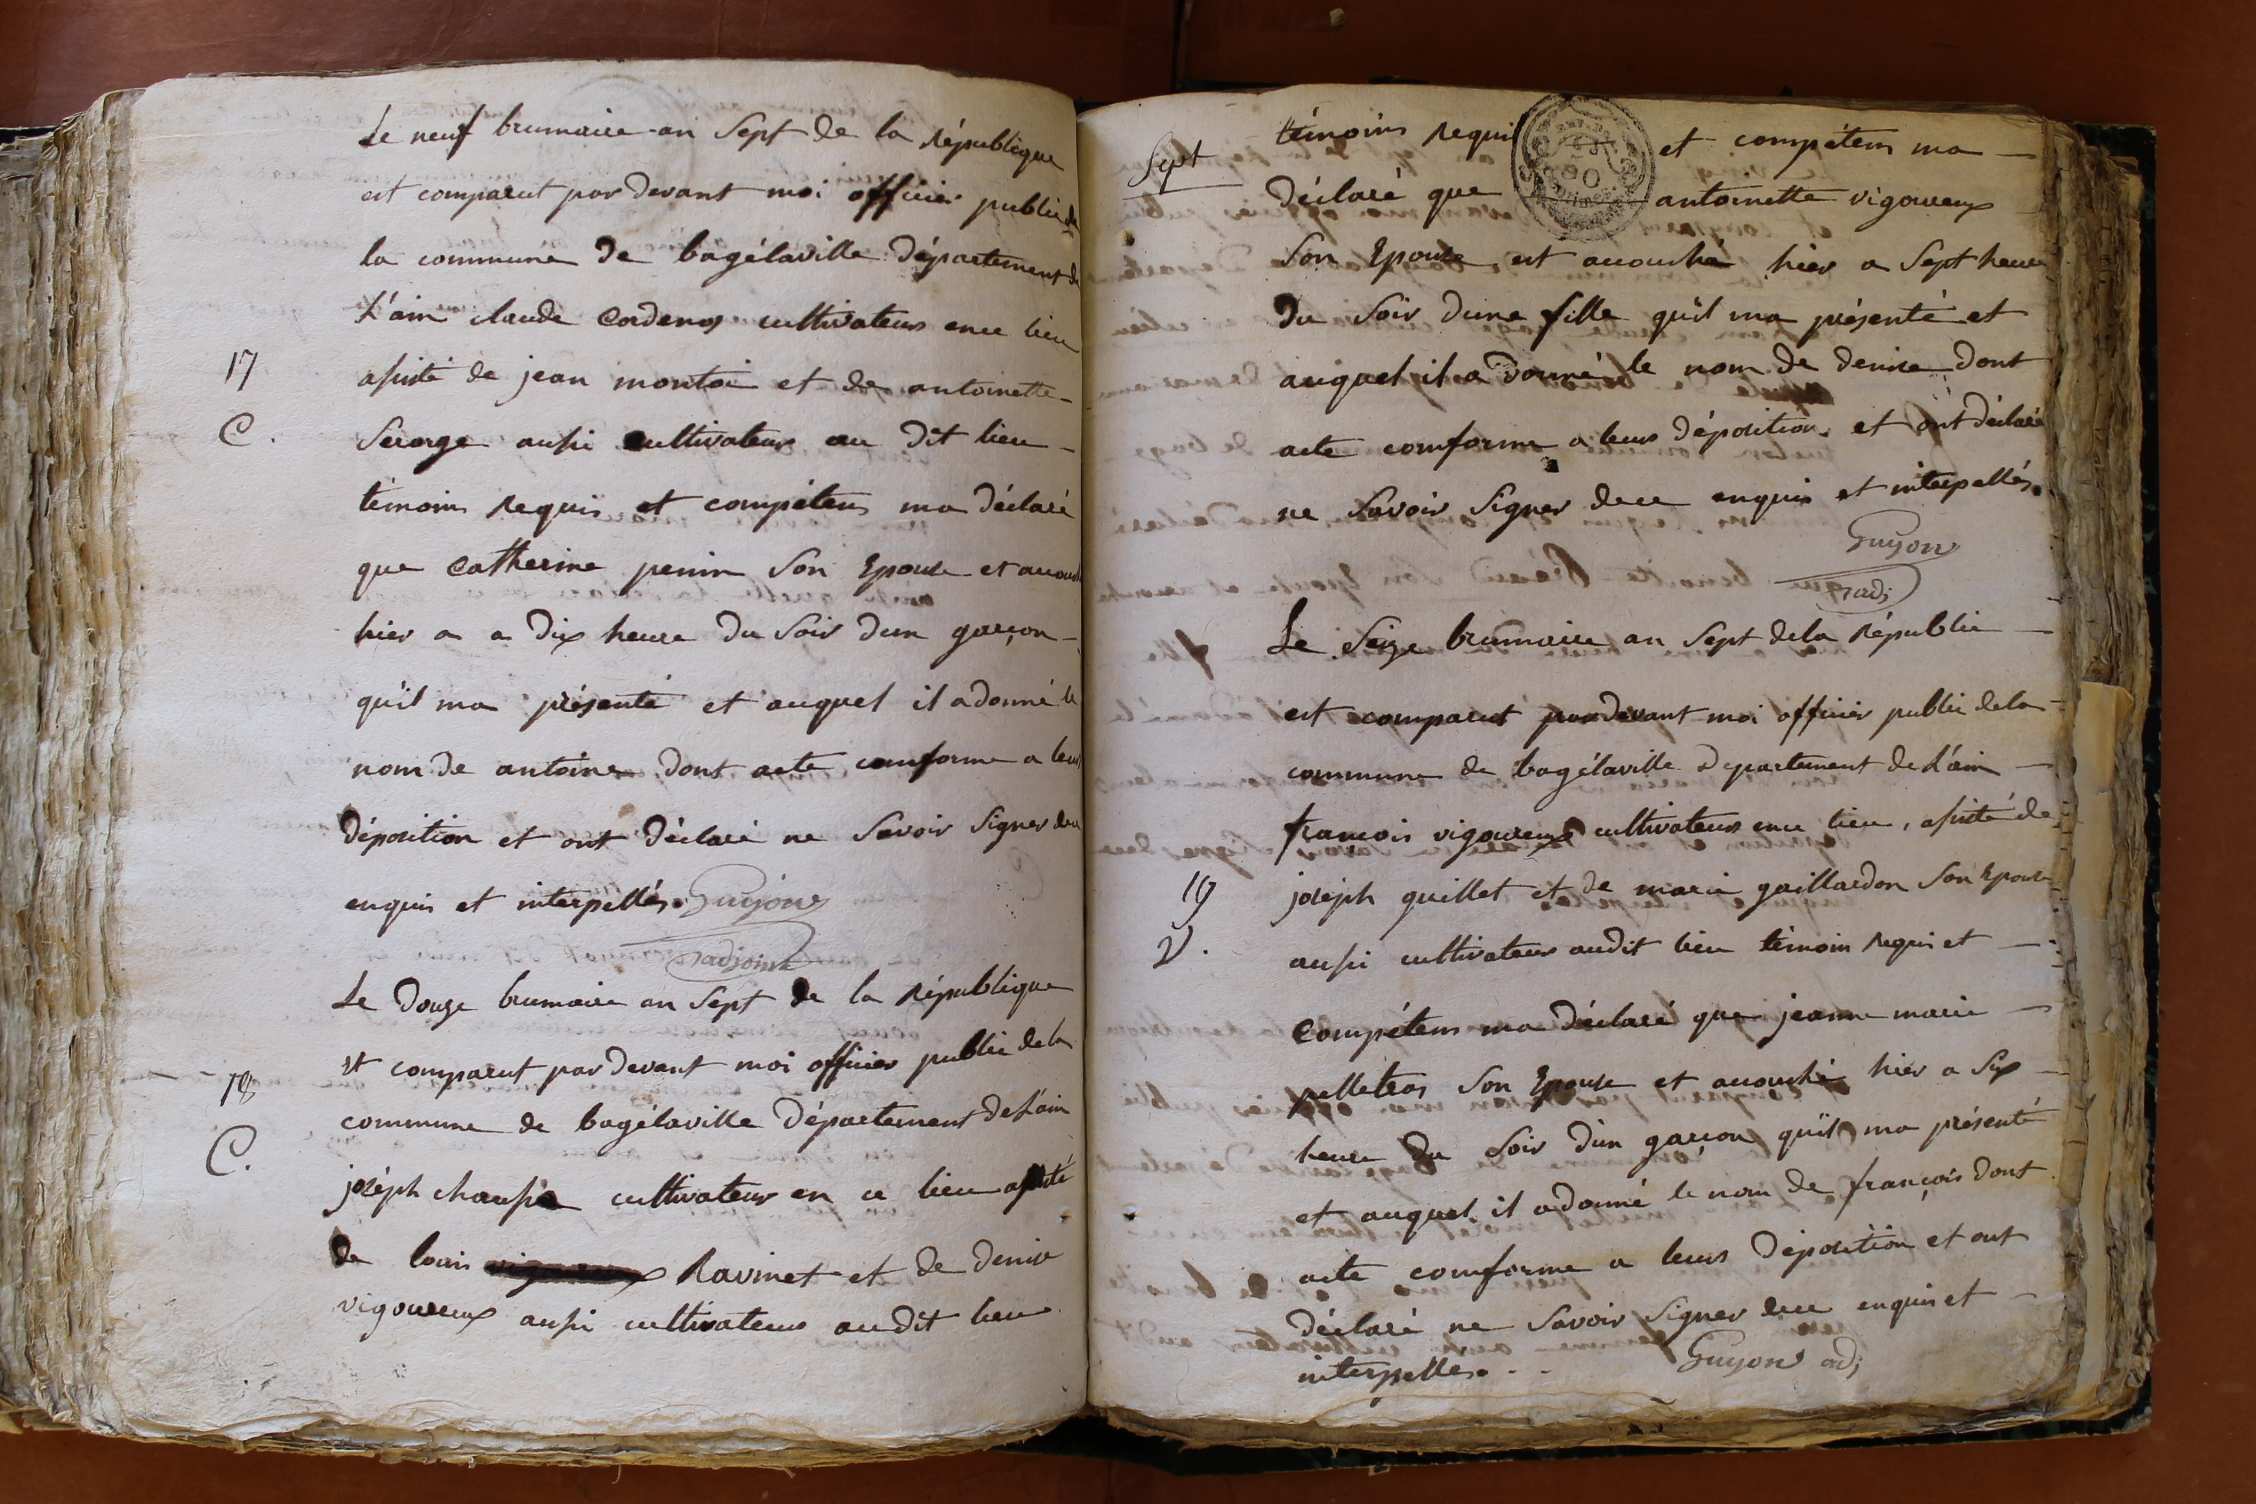 Le neuf brumaire an Sept de la République
est comparut par devant moi officier public de
la commune de bagélaville département de
L'ain claude Cordenos cultivateur en ce lieu
17
assisté de jean montoi et de antoinette
C.
Serorge aussi cultivateur au dit lieu
témoins requis et compétens ma déclaré
que Catherine penin son Epouse et accouché
hier a a dix heure du soir d'un garçon
qu'il ma présenté et auquel il a donné le
nom de antoine dont acte comforme a leurs
déposition et ont déclaré ne savoir signer de ce
enquis et interpellés. Guyon
adjoint
Le douze brumaire an Sept de la République
est comparut par devant moi officier public de la
18
commune de bagélaville département de L'ain
C.
joséph chaussa cultivateur en ce lieu assisté
de louis Ravinet et de denise
vigoureux aussi cultivateurs au dit lieu
Sept
témoins requis et compétens ma
déclaré que antoinette vigoureux
son Epouse est accouché hier a sept heure
du soir d'une fille qu'il ma présenté et
auquel il a donné le nom de denise dont
acte comforme a leurs déposition et ont déclaré
ne savoir signer de ce enquis et interpellés.
Guyon
adj
Le Seize brumaire an Sept de la Républic
est comparut par devant moi officier public de la
commune de bagélaville Département de L'ain
francois vigoureux cultivateur en ce lieu, assisté de
19
joséph guillet et de marie gaillardon son Epouse
V.
aussi cultivateur audit lieu témoin requis et
compétens ma déclaré que jeanne marie
pelletras son Epouse et accouché hier a six
heure du soir d'un garçon qu'il ma présenté
et auquel il a donné le nom de françois dont
acte comforme a leurs déposition et ont
déclaré ne savoir signer de ce enquis et
interpelles. - -
Guyon adj